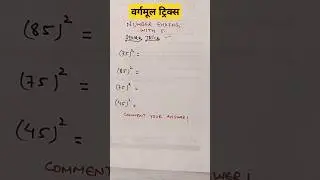 वर्गमूल ट्रिक्स
NUMBER ENDING
WITH 5
(75)² =
(85)² =
(85)² =
(75)² =
(75)² =
(45)² =
(45)² =
COMMENT YOUR ANSWER!